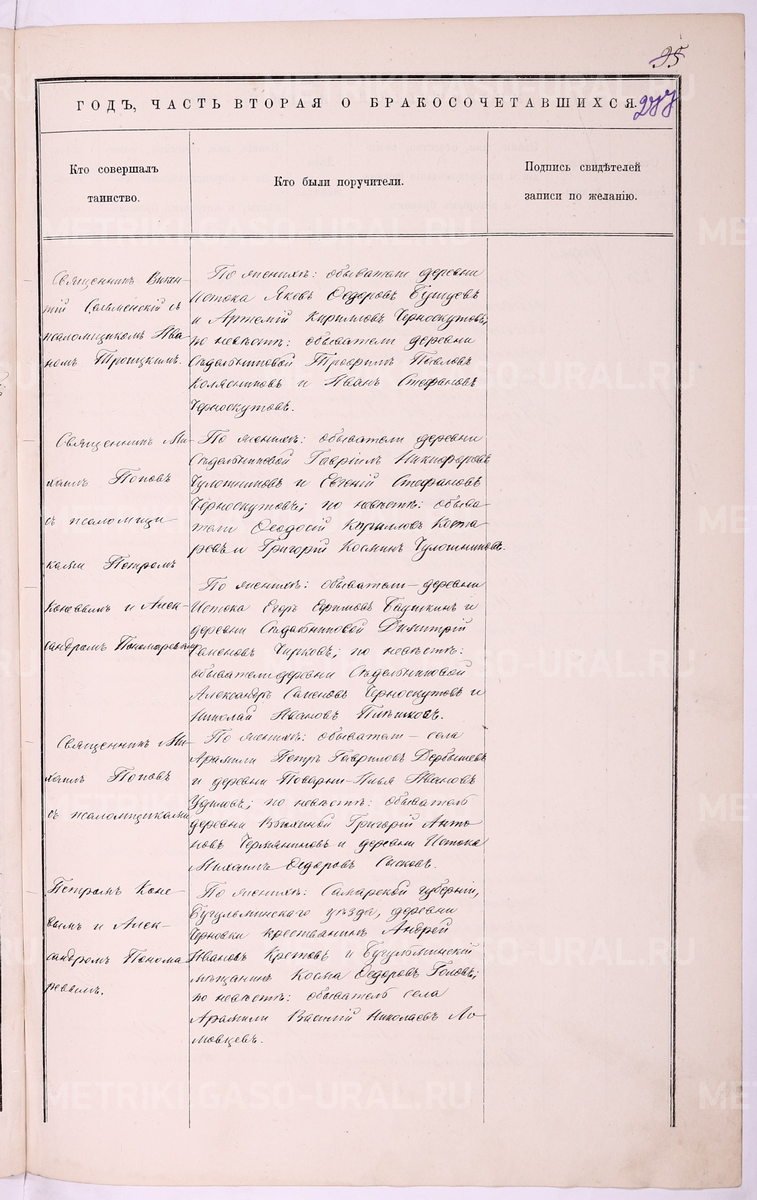 95
277
ГОДЪ, ЧАСТЬ ВТОРАЯ О БРАКОСОЧЕТАВШИХСЯ.
Кто совершалъ
таинство.
Кто были поручители.
Подпись свидѣтелей
записи по желанію.
Священникъ Викен-
тій съ
псаломщикомъ Ива-
номъ Троицкимъ.
По женихѣ: обыватели деревни
Истока Яковъ Ѳедоровъ
и Артемій Кирилловъ Черноскутовъ;
по невѣстѣ: обыватели деревни
Сѣдельниковой Трофимъ Павловъ
Колясниковъ и Иванъ Стефановъ
Черноскутовъ.
Священникъ Ми-
хаилъ Поповъ
съ псаломщи-
ками Петромъ
Коневымъ и Алек-
сандромъ Пономаревымъ
По женихѣ: обыватели деревни
Сѣдельниковой Гавріилъ Никифоровъ
Чулошниковъ и Евгеній Стефановъ
Черноскутовъ; по невѣстѣ: обыва-
тели Ѳеодосій Кирилловъ
и Григорій Косминъ Чулошниковъ.
По женихѣ: обыватели – деревни
Истока Егоръ Ефимовъ и
деревни Сѣдельниковой Димитрій
Семеновъ Чирковъ; по невѣстѣ:
обыватели деревни Сѣдельниковой
Александръ Семеновъ Черноскутовъ и
Николай Ивановъ
Священникъ Ми-
хаилъ Поповъ
съ псаломщиками
По женихѣ: обыватели – села
Арамили Петръ Гавриловъ Дербышевъ
и деревни Поварни Илья Ивановъ
по невѣстѣ: обыватель
деревни Григорій Анто-
новъ и деревни Истока
Михаилъ Ѳедоровъ Сысковъ.
Петромъ Коне-
вымъ и Алек-
сандромъ Понома-
ревымъ.
По женихѣ: Самарской губерніи,
Бугульминскаго уѣзда, деревни
Черновки крестьянинъ Андрей
Ивановъ Кретовъ и Бугульминскій
мѣщанинъ Косма Ѳедоровъ
по невѣстѣ: обыватель села
Арамили Василій Николаевъ Ло-
мовцевъ.
METRIKI.GASO-URAL.RU